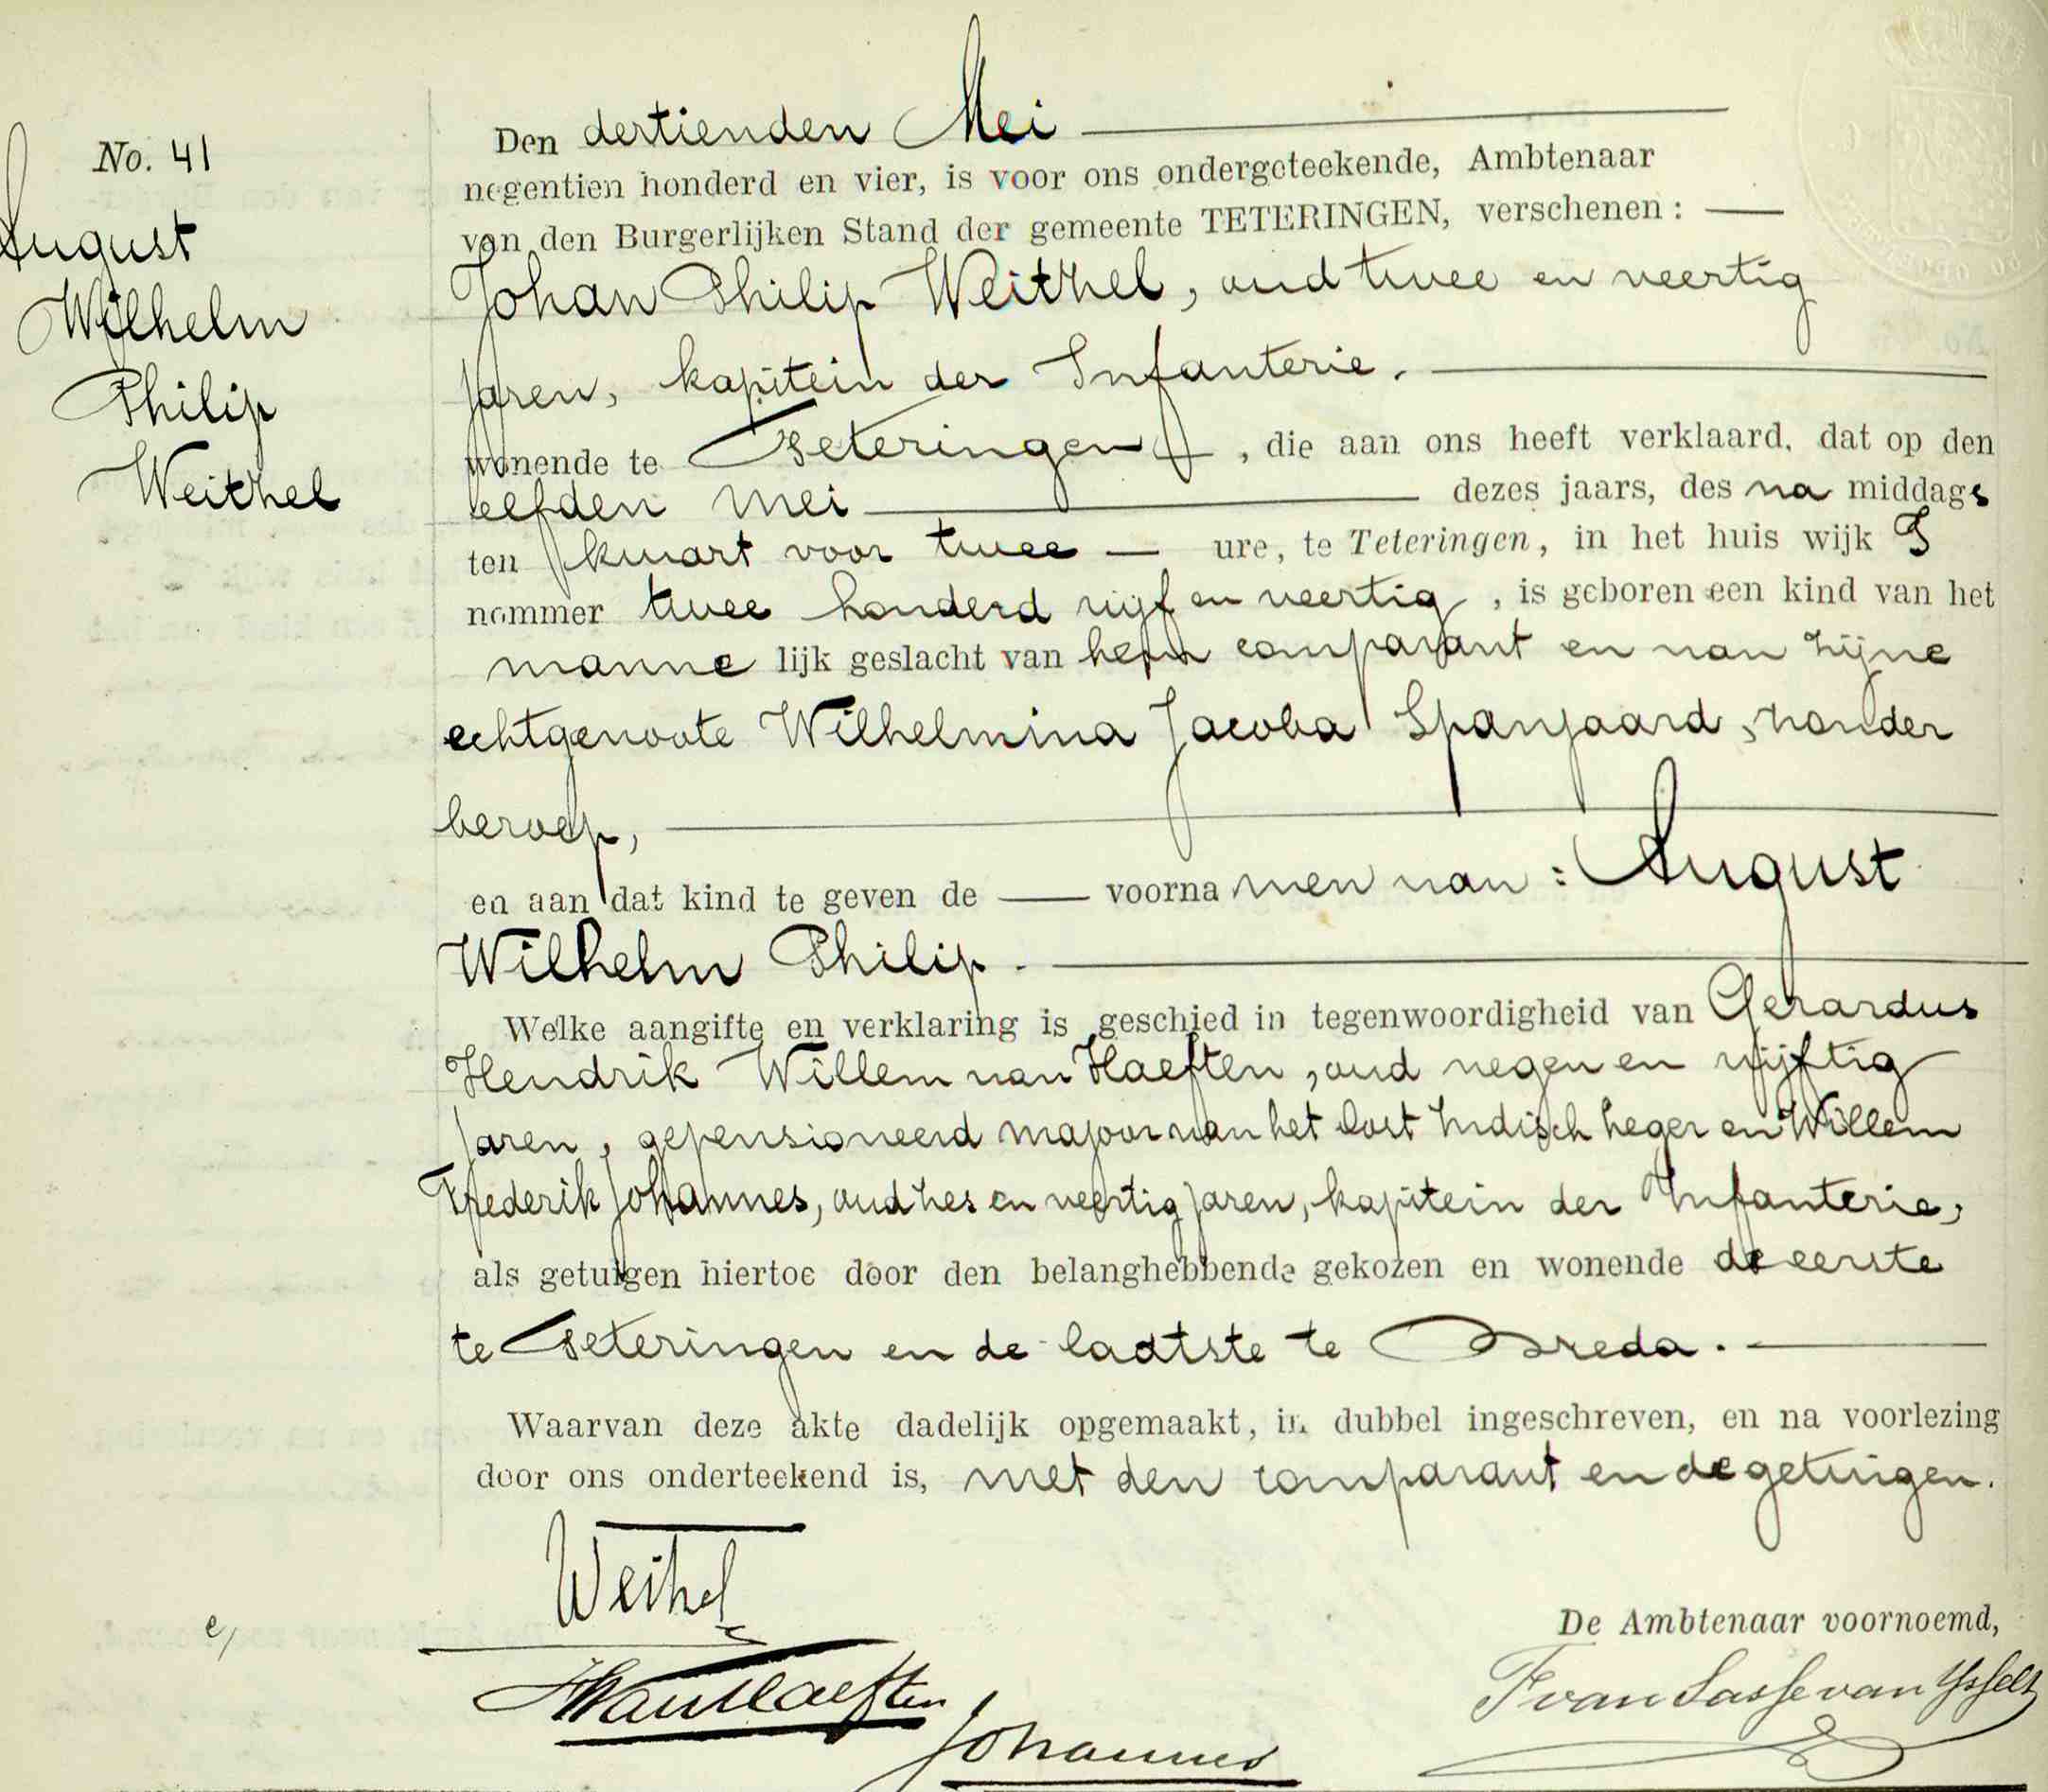 No. 41
August
Wilhelm
Philip
Weithel
Den dertienden Mei
negentien honderd en vier, is voor ons ondergeteekende, Ambtenaar
van den Burgerlijken Stand der gemeente TETERINGEN, verschenen:
Johan Philip Weithel, oud twee en veertig
jaren, kapitein der Infanterie.
wonende te Teteringen, die aan ons heeft verklaard, dat op den
elfden mei dezes jaars, des na middags
ten kwart voor twee ure, te Teteringen, in het huis wijk
nommer twee honderd vijf en veertig, is geboren een kind van het
manne lijk geslacht van hem comparant en van zijne
echtgenoote Wilhelmina Jacoba Spanjaard, zonder
beroep,
en aan dat kind te geven de voorna men van: August
Wilhelm Philip.
Welke aangifte en verklaring is geschied in tegenwoordigheid van Gerardus
Hendrik Willem van Haeften, oud negen en vijftig
jaren, gepensioneerd majoor van het Oost Indisch leger en Willem
Frederik Johannes, oud zes en veertig jaren, kapitein der Infanterie,
als getuigen hiertoe door den belanghebbende gekozen en wonende de eerste
te Teteringen en de laatste te Breda.
Waarvan deze akte dadelijk opgemaakt, in dubbel ingeschreven, en na voorlezing
door ons onderteekend is, met den comparant en de getuigen.
Weithel
De Ambtenaar voornoemd,
van Haeften
F van Sasse van Ysselt
Johannes